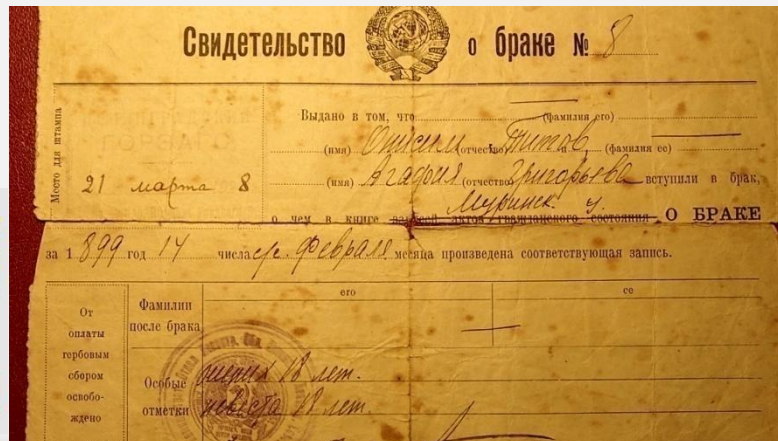 Свидетельство о браке № 8
Выдано в том, что (фамилия его)
(имя) Онисим (отчество) Титов (фамилия ее)
Место для штампа
21 марта 8 (имя) Агафия (отчество) Григорьева вступили в брак,
о чем в книге записей актов гражданского состояния О БРАКЕ
за 1899 год 14 числа с/с. Февраля месяца произведена соответствующая запись.
его ее
От оплаты гербовым сбором освобо-ждено
Фамилии после брака
Особые отметки
жених 18 лет.
невеста 18 лет.